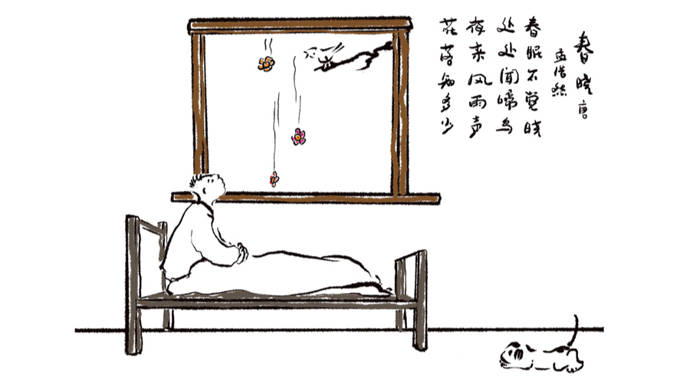 春晓 唐
孟浩然
春眠不觉晓
处处闻啼鸟
夜来风雨声
花落知多少